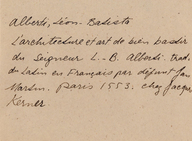 Alberti, Léon-Batista
L'architecture et art de bien bastir
du Seigneur L.-B. Alberti trad.
de Latin en Français par défunt Jan
Martin. Paris 1553. chez Jacques
Kerner